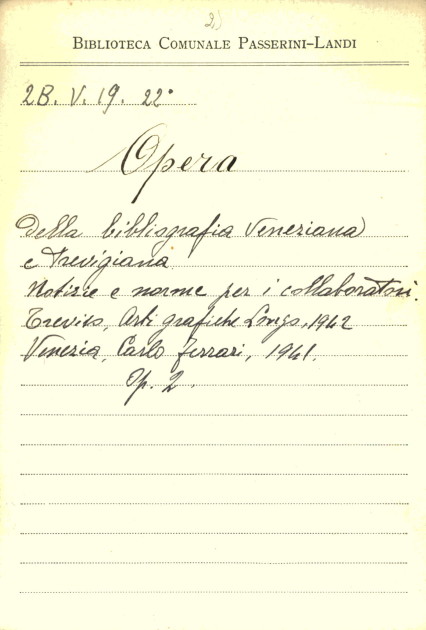 2)
BIBLIOTECA COMUNALE PASSERINI-LANDI
2B. V. 19. 22°
Opera
della bibliografia Veneziana
e Trevigiana
Notizie e norme per i collaboratori.
Treviso, Arti grafiche Longo, 1942
Venezia, Carlo Ferrari, 1941.
Op. 2.